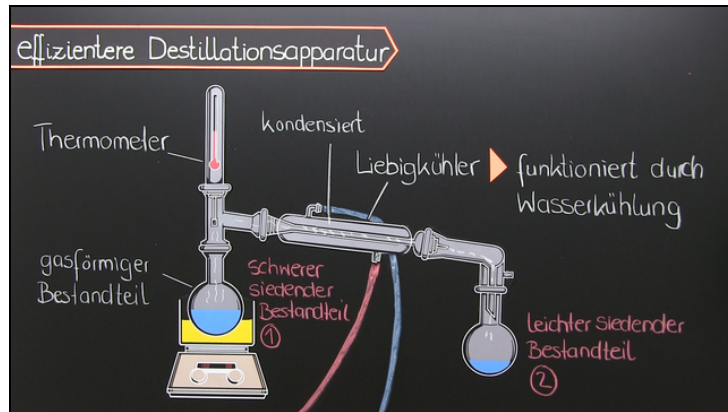 effizientere Destillationsapparatur
Thermometer
kondensiert
Liebigkühler
funktioniert durch
Wasserkühlung
gasförmiger
Bestandteil
schwerer
siedender
Bestandteil
1
leichter siedender
Bestandteil
2